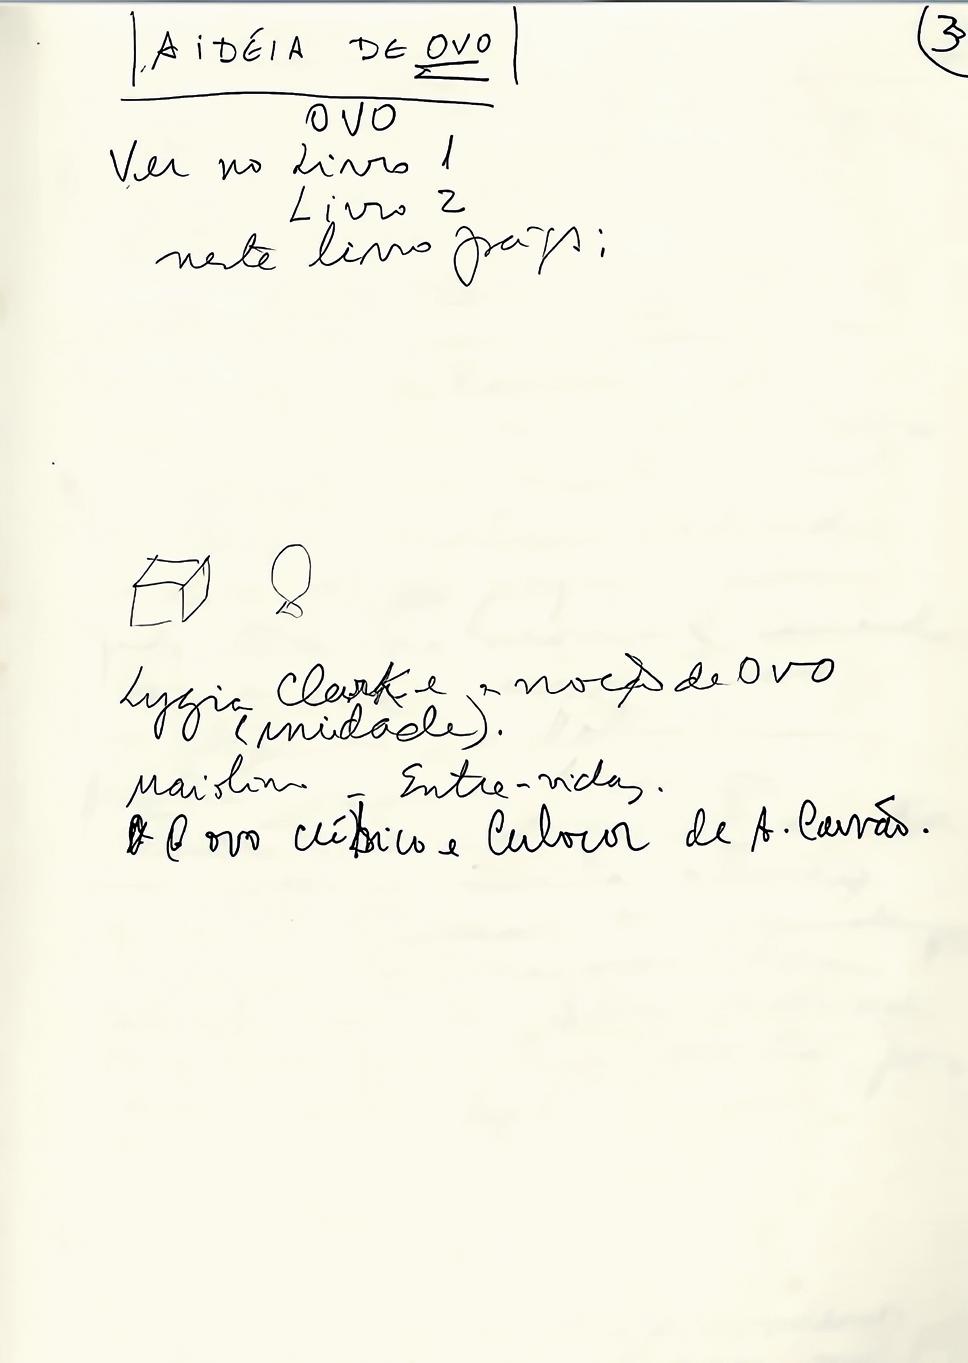 3
A IDÉIA DE OVO
OVO
Ver no Livro 1
Livro 2
neste livro págs:
Lygia Clark e a noção de OVO
(unidade).
Maiolino - Entre-vidas.
O ovo cúbico e Cubocor de A. Carvão.